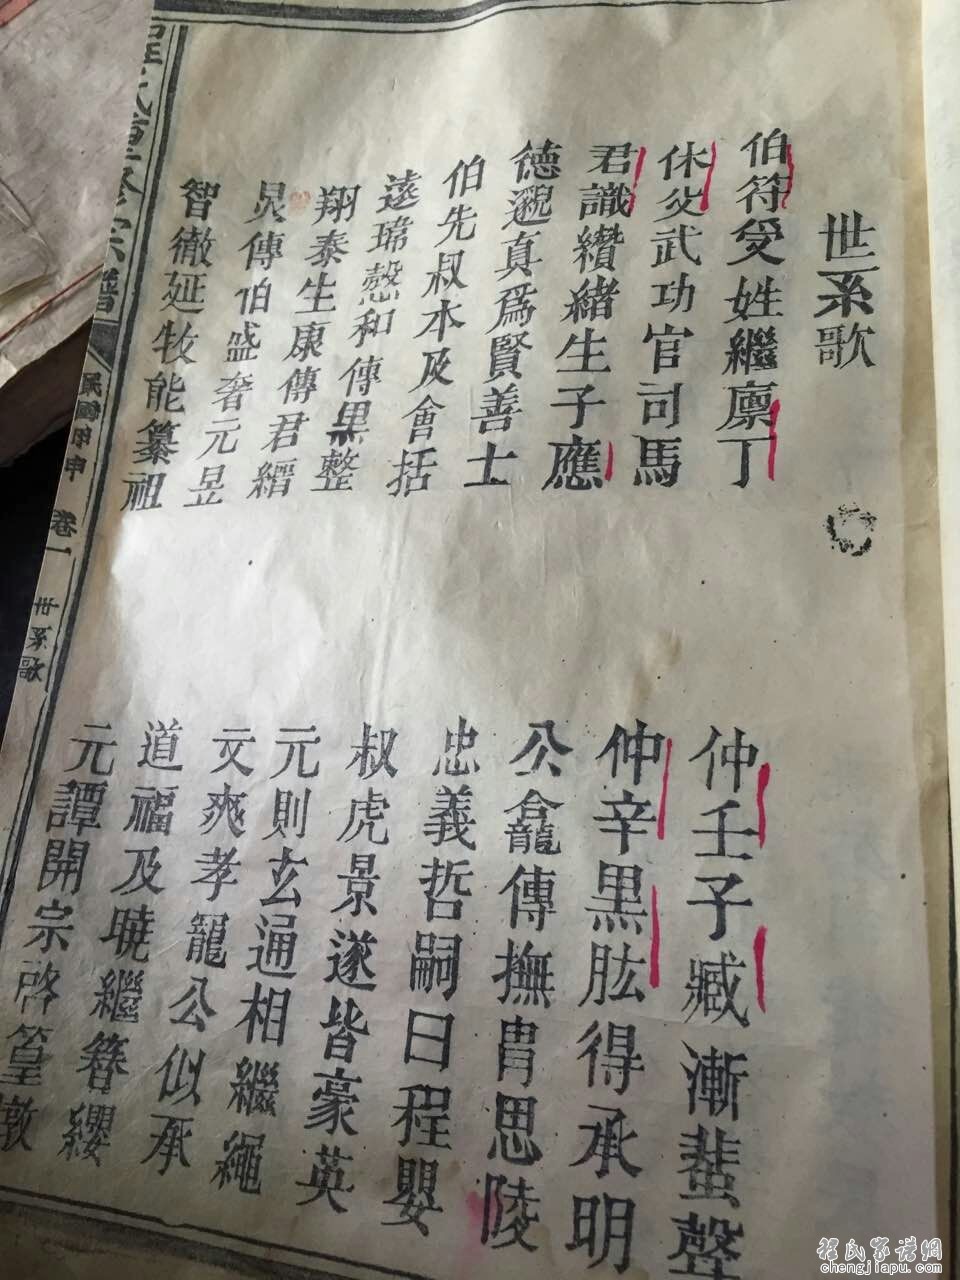 世系歌
伯符受姓繼廪丁
仲壬子臧漸蜚聲
休炎武功官司馬
仲辛黑肱得承明
君識纘緒生子應
公龕傳撫胄思陵
德邈真為賢善士
忠義哲嗣曰程嬰
伯先叔本及會括
叔虎景遂皆豪英
遠瑋愨和傳黑整
元則玄通相繼繩
翔泰生康傳君縉
文爽孝寵公似承
炅傳伯盛奢元昱
道福及曉繼簪纓
智徹延牧能纂祖
元譚開宗啓篁墩
程氏重修宗譜
民國甲申
卷一
世系歌
程氏家谱網
chengjiapu.com